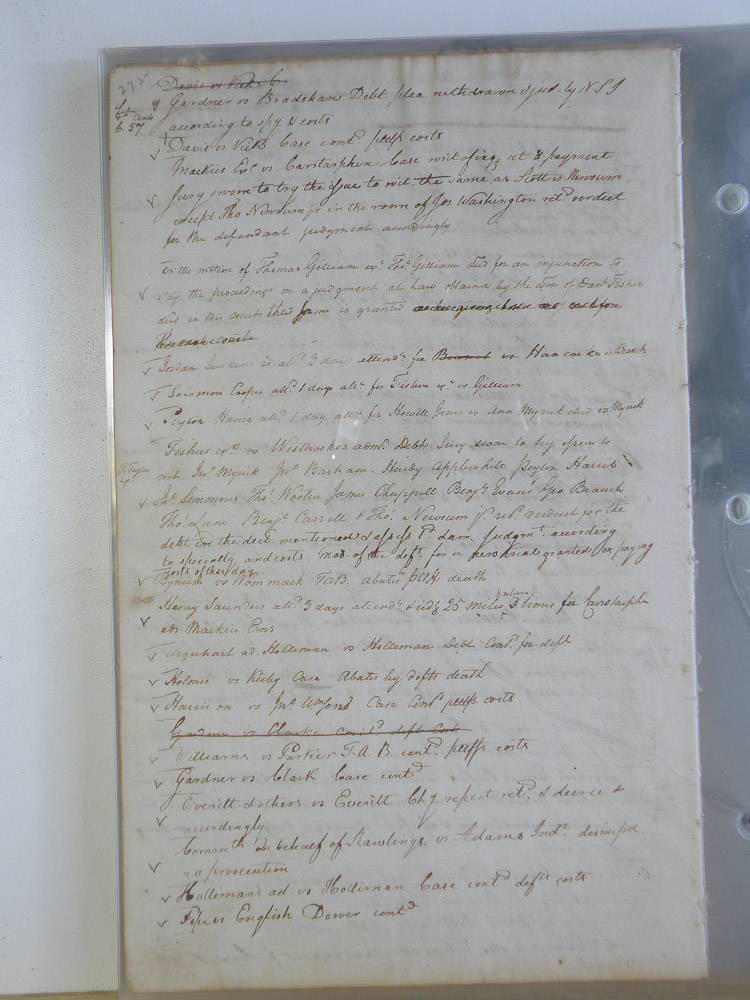 275
Davis vs
Gardner vs Bradshaw Debt plea withdrawn & jud. by N S I
Cents
6. 57
according to spy & costs
Davis vs Case contd plffs costs
Mackies Exs vs Carstarphen Case writ of inq. set & payment
Jury sworn to try the issue to wit. the same as Scott vs Newsum
except Tho Newsum jr in the room of Jos Washington retd. verdict
for the defendant judgment accordingly
On the motion of Thomas Gilliam exr. Tho. Gilliam decd for an injunction to
stay the proceedings on a judgment at Law obtaind by the exors of Danl. Fisher
decd in this court the same is granted
Jordan alld. 3 days attendce. for Branch vs Hancocke Branch
Solomon Cooper alld. 1 days atte. for Fishers exs. vs Gilliam
Peyton Harris alld. 1 day atte. for Howell Jones vs Ann Myrick decd vs Myrick
Fishers exrs. vs Westbrookes admr. Debt Jury sworn to try issue to
wit Jno. Myrick Jno. Barham Henry Applewhite Peyton Harris
Jno. Simmons Thos. Wooten James Chappell Benja. Evans Geo. Branch
Tho. Lane Benja. Carrell & Tho. Newsum jr. retd. verdict for the
debt in the decl. mentioned & assess 1d. dam. judgmt. according
to specialty and costs. of the deft. for a new trial granted on paying
costs of this day
vs Wommack TAB. abates plffs death
Henry Saunders alld. 3 days attendce. & ridg 25 miles 3 times for Carstarphen
ads Mackies Exors
Urquhart ad. Holleman vs Holleman Debt Contd. for deft
Holmes vs Case Abates by defts death
Harrison vs Jno. Case Contd plffs costs
Gardner vs Clarke contd. defts Costs
Williams vs Parker T. A. B contd. plffs costs
Gardner vs Clark Case contd
Everitt & others vs Everitt Chy report retd. & decree
accordingly
Commth. on behalf of Rawlings vs Adams Indt. dismissd
no prosecution
Holliman's ad vs Holliman Case contd defts costs
vs English Dower contd